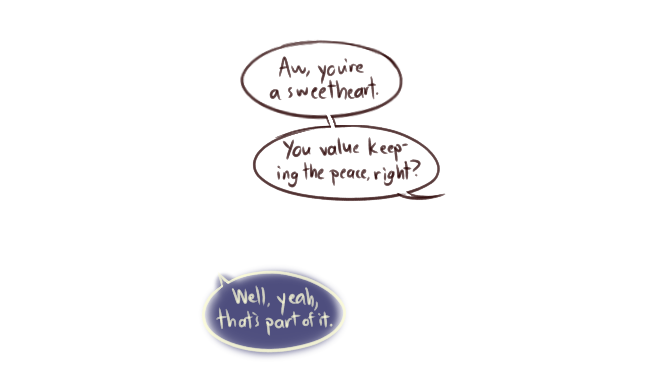 Aw, you're
a sweetheart.
You value keep-
ing the peace, right?
Well, yeah,
that's part of it.